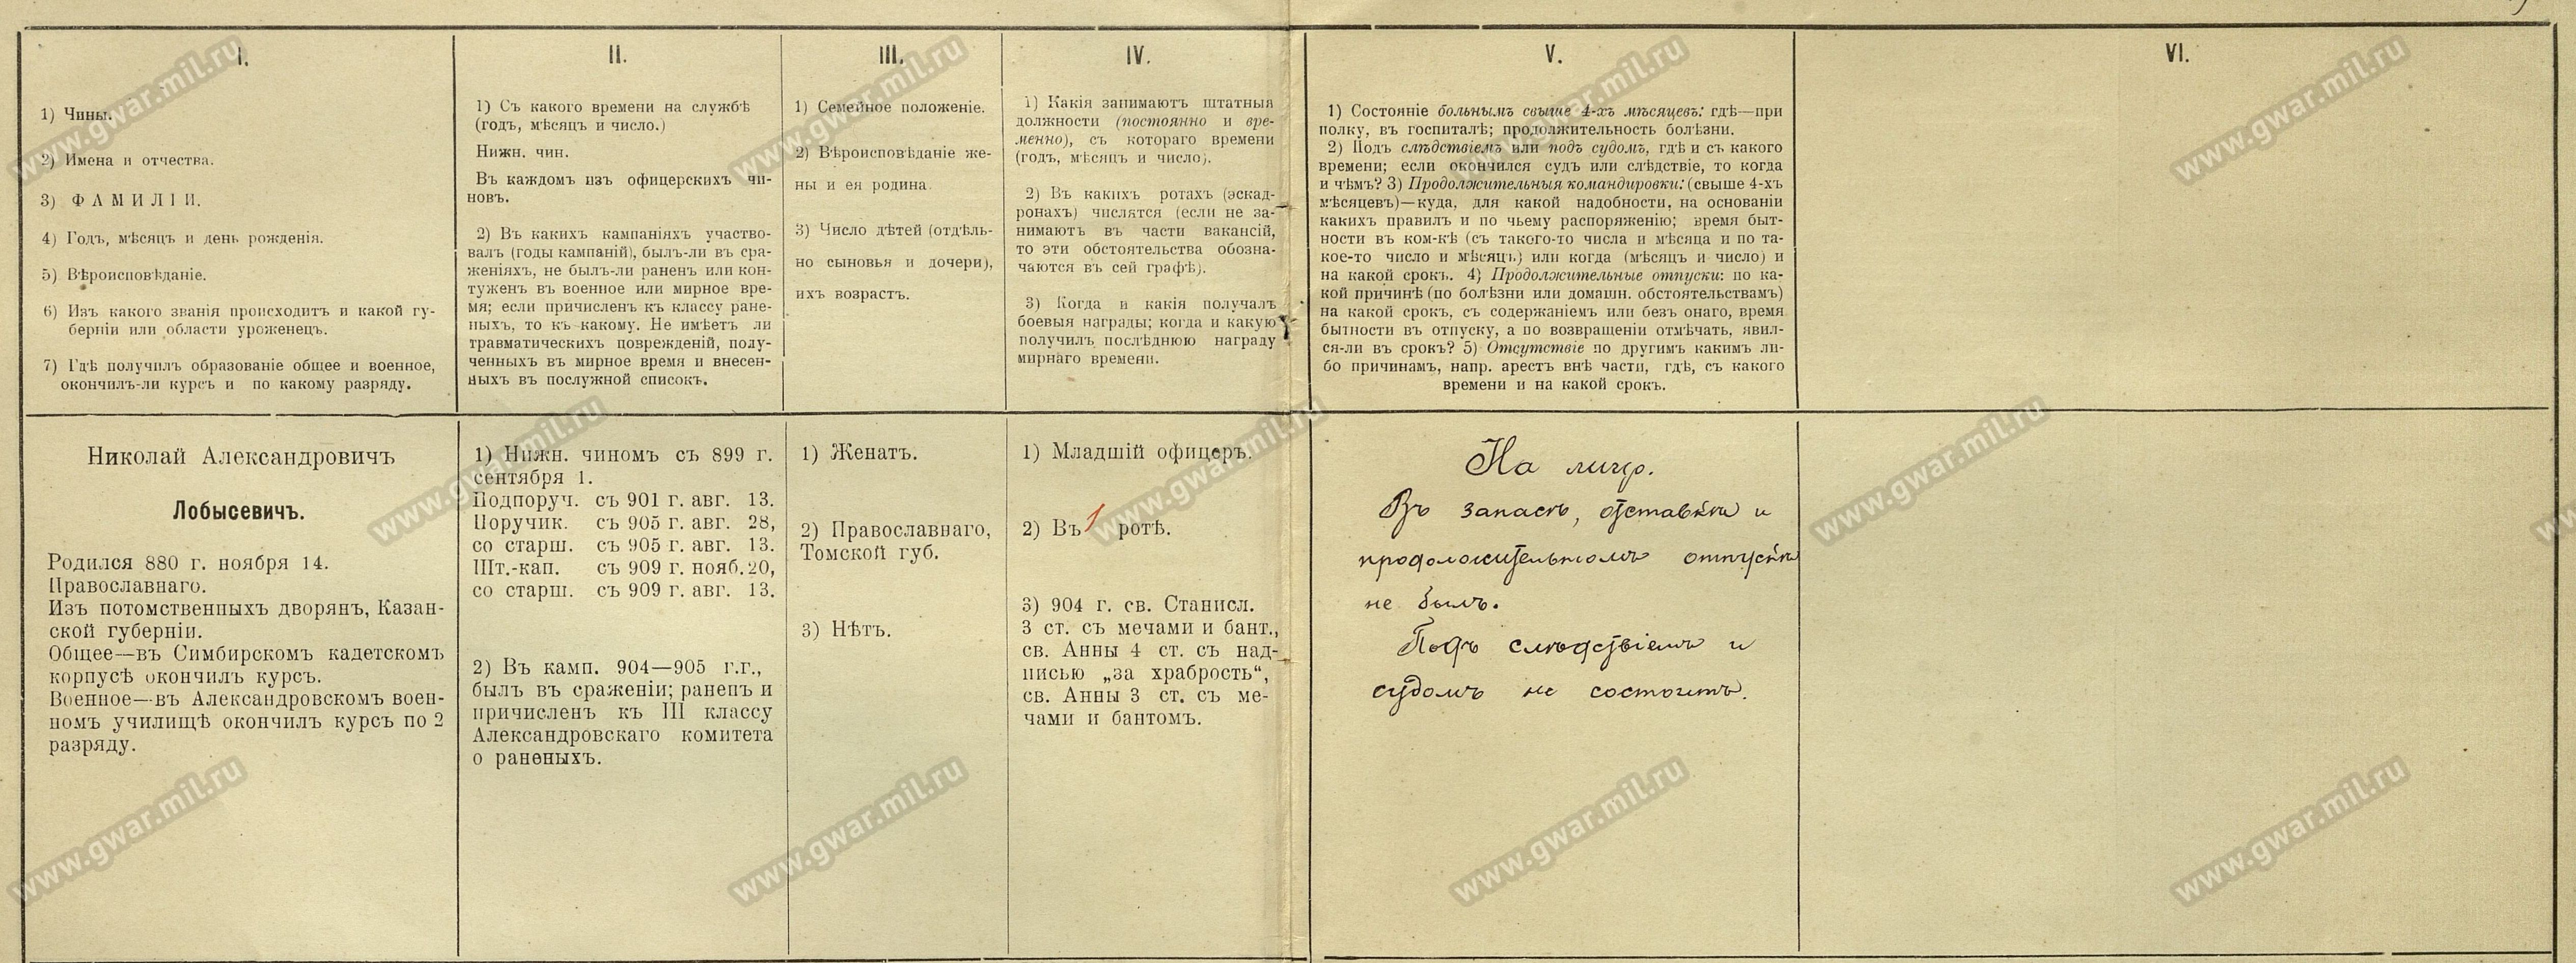 I.
1) Чины.
2) Имена и отчества.
3) ФАМИЛІИ.
4) Годъ, мѣсяцъ и день рожденія.
5) Вѣроисповѣданіе.
6) Изъ какого званія происходитъ и какой гу-
берніи или области уроженецъ.
7) Гдѣ получилъ образованіе общее и военное,
окончилъ-ли курсъ и по какому разряду.
II.
1) Съ какого времени на службѣ
(годъ, мѣсяцъ и число.)
Нижн. чин.
Въ каждомъ изъ офицерскихъ чи-
новъ.
2) Въ какихъ кампаніяхъ участво-
валъ (годы кампаній), былъ-ли въ сра-
женіяхъ, не былъ-ли раненъ или кон-
туженъ въ военное или мирное вре-
мя; если причисленъ къ классу ране-
ныхъ, то къ какому. Не имѣетъ ли
травматическихъ поврежденій, полу-
ченныхъ въ мирное время и внесен-
ныхъ въ послужной списокъ.
III.
1) Семейное положеніе.
2) Вѣроисповѣданіе же-
ны и ея родина.
3) Число дѣтей (отдѣль-
но сыновья и дочери),
ихъ возрастъ.
IV.
1) Какія занимаютъ штатныя
должности (постоянно и вре-
менно), съ котораго времени
(годъ, мѣсяцъ и число).
2) Въ какихъ ротахъ (эскад-
ронахъ) числятся (если не за-
нимаютъ въ части вакансій,
то эти обстоятельства обозна-
чаются въ сей графѣ).
3) Когда и какія получалъ
боевыя награды; когда и какую
получилъ послѣднюю награду
мирнаго времени.
V.
1) Состояніе больнымъ свыше 4-хъ мѣсяцевъ: гдѣ—при
полку, въ госпиталѣ; продолжительность болѣзни.
2) Подъ слѣдствіемъ или подъ судомъ, гдѣ и съ какого
времени; если окончился судъ или слѣдствіе, то когда
и чѣмъ? 3) Продолжительныя командировки: (свыше 4-хъ
мѣсяцевъ)—куда, для какой надобности, на основаніи
какихъ правилъ и по чьему распоряженію; время быт-
ности въ ком-кѣ (съ такого-то числа и мѣсяца и по та-
кое-то число и мѣсяцъ) или когда (мѣсяцъ и число) и
на какой срокъ. 4) Продолжительные отпуски: по ка-
кой причинѣ (по болѣзни или домашн. обстоятельствамъ)
на какой срокъ, съ содержаніемъ или безъ онаго, время
бытности въ отпуску, а по возвращеніи отмѣчать, явил-
ся-ли въ срокъ? 5) Отсутствіе по другимъ какимъ ли-
бо причинамъ, напр. арестъ внѣ части, гдѣ, съ какого
времени и на какой срокъ.
VI.
Николай Александровичъ
Лобысевичъ.
Родился 880 г. ноября 14.
Православнаго.
Изъ потомственныхъ дворянъ, Казан-
ской губерніи.
Общее—въ Симбирскомъ кадетскомъ
корпусѣ окончилъ курсъ.
Военное—въ Александровскомъ воен-
номъ училищѣ окончилъ курсъ по 2
разряду.
1) Нижн. чиномъ съ 899 г.
сентября 1.
Подпоруч. съ 901 г. авг. 13.
Поручик. съ 905 г. авг. 28,
со старш. съ 905 г. авг. 13.
Шт.-кап. съ 909 г. нояб. 20,
со старш. съ 909 г. авг. 13.
2) Въ камп. 904—905 г.г.,
былъ въ сраженіи; раненъ и
причисленъ къ III классу
Александровскаго комитета
о раненыхъ.
1) Женатъ.
2) Православнаго,
Томской губ.
3) Нѣтъ.
1) Младшій офицеръ.
2) Въ 1 ротѣ.
3) 904 г. св. Станисл.
3 ст. съ мечами и бант.,
св. Анны 4 ст. съ над-
писью „за храбрость“,
св. Анны 3 ст. съ ме-
чами и бантомъ.
На лицо.
Въ запасѣ, отставкѣ и
продолжительномъ отпускѣ
не былъ.
Подъ слѣдствіемъ и
судомъ не состоитъ.
www.gwar.mil.ru
www.gwar.mil.ru
www.gwar.mil.ru
www.gwar.mil.ru
www.gwar.mil.ru
www.gwar.mil.ru
www.gwar.mil.ru
www.gwar.mil.ru
www.gwar.mil.ru
www.gwar.mil.ru
www.gwar.mil.ru